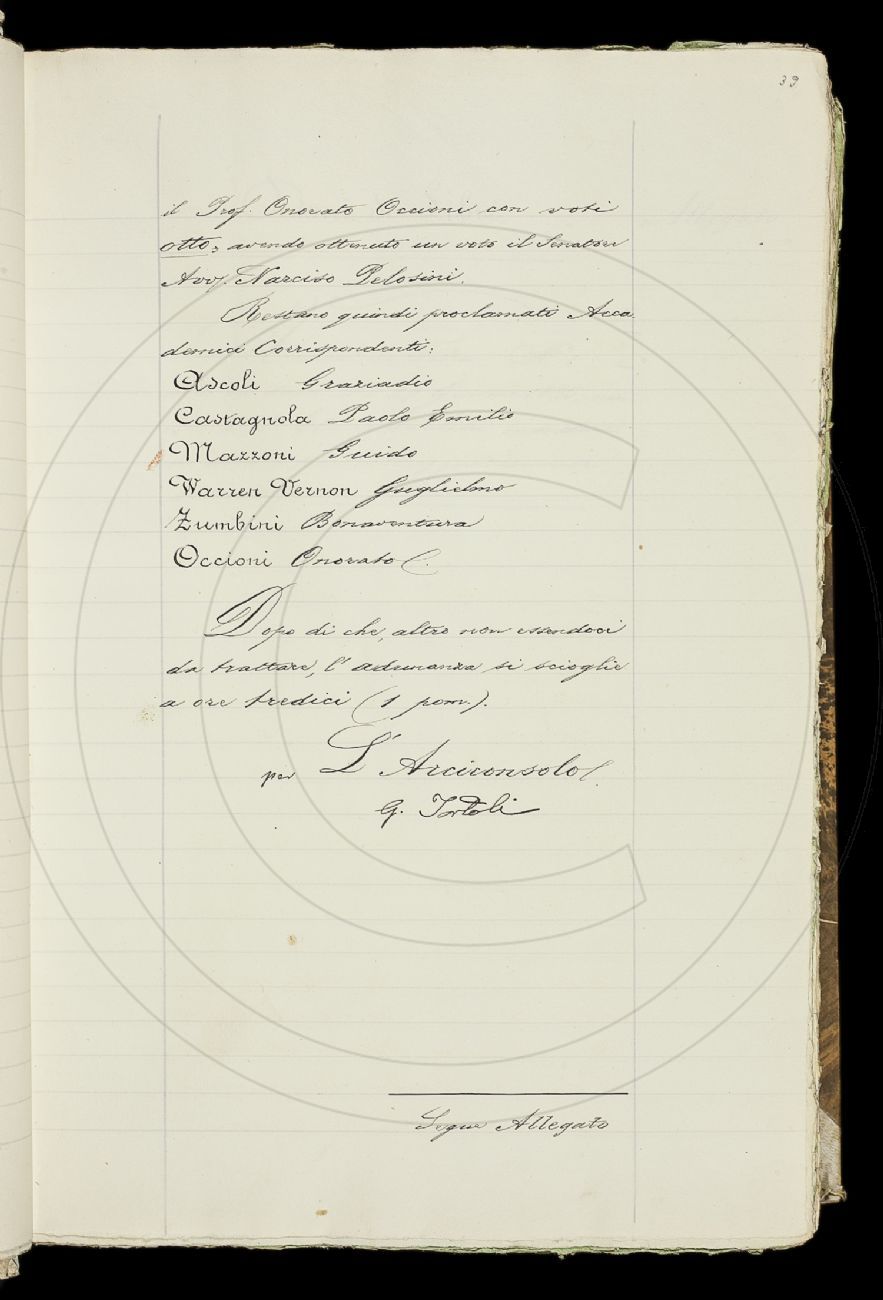 39
il Prof. Onorato Occioni con voti
otto; avendo ottenuto un voto il Senatore
Avv. Narciso Pelosini.
Restano quindi proclamati Acca
demici Corrispondenti:
Ascoli Graziadio
Castagnola Paolo Emilio
Mazzoni Guido
Warren Vernon Guglielmo
Zumbini Bonaventura
Occioni Onorato
Dopo di che, altro non essendoci
da trattare, l'adunanza si scioglie
a ore tredici (1 pom.).
per L'Arciconsolo
G. Tortoli
Segue Allegato